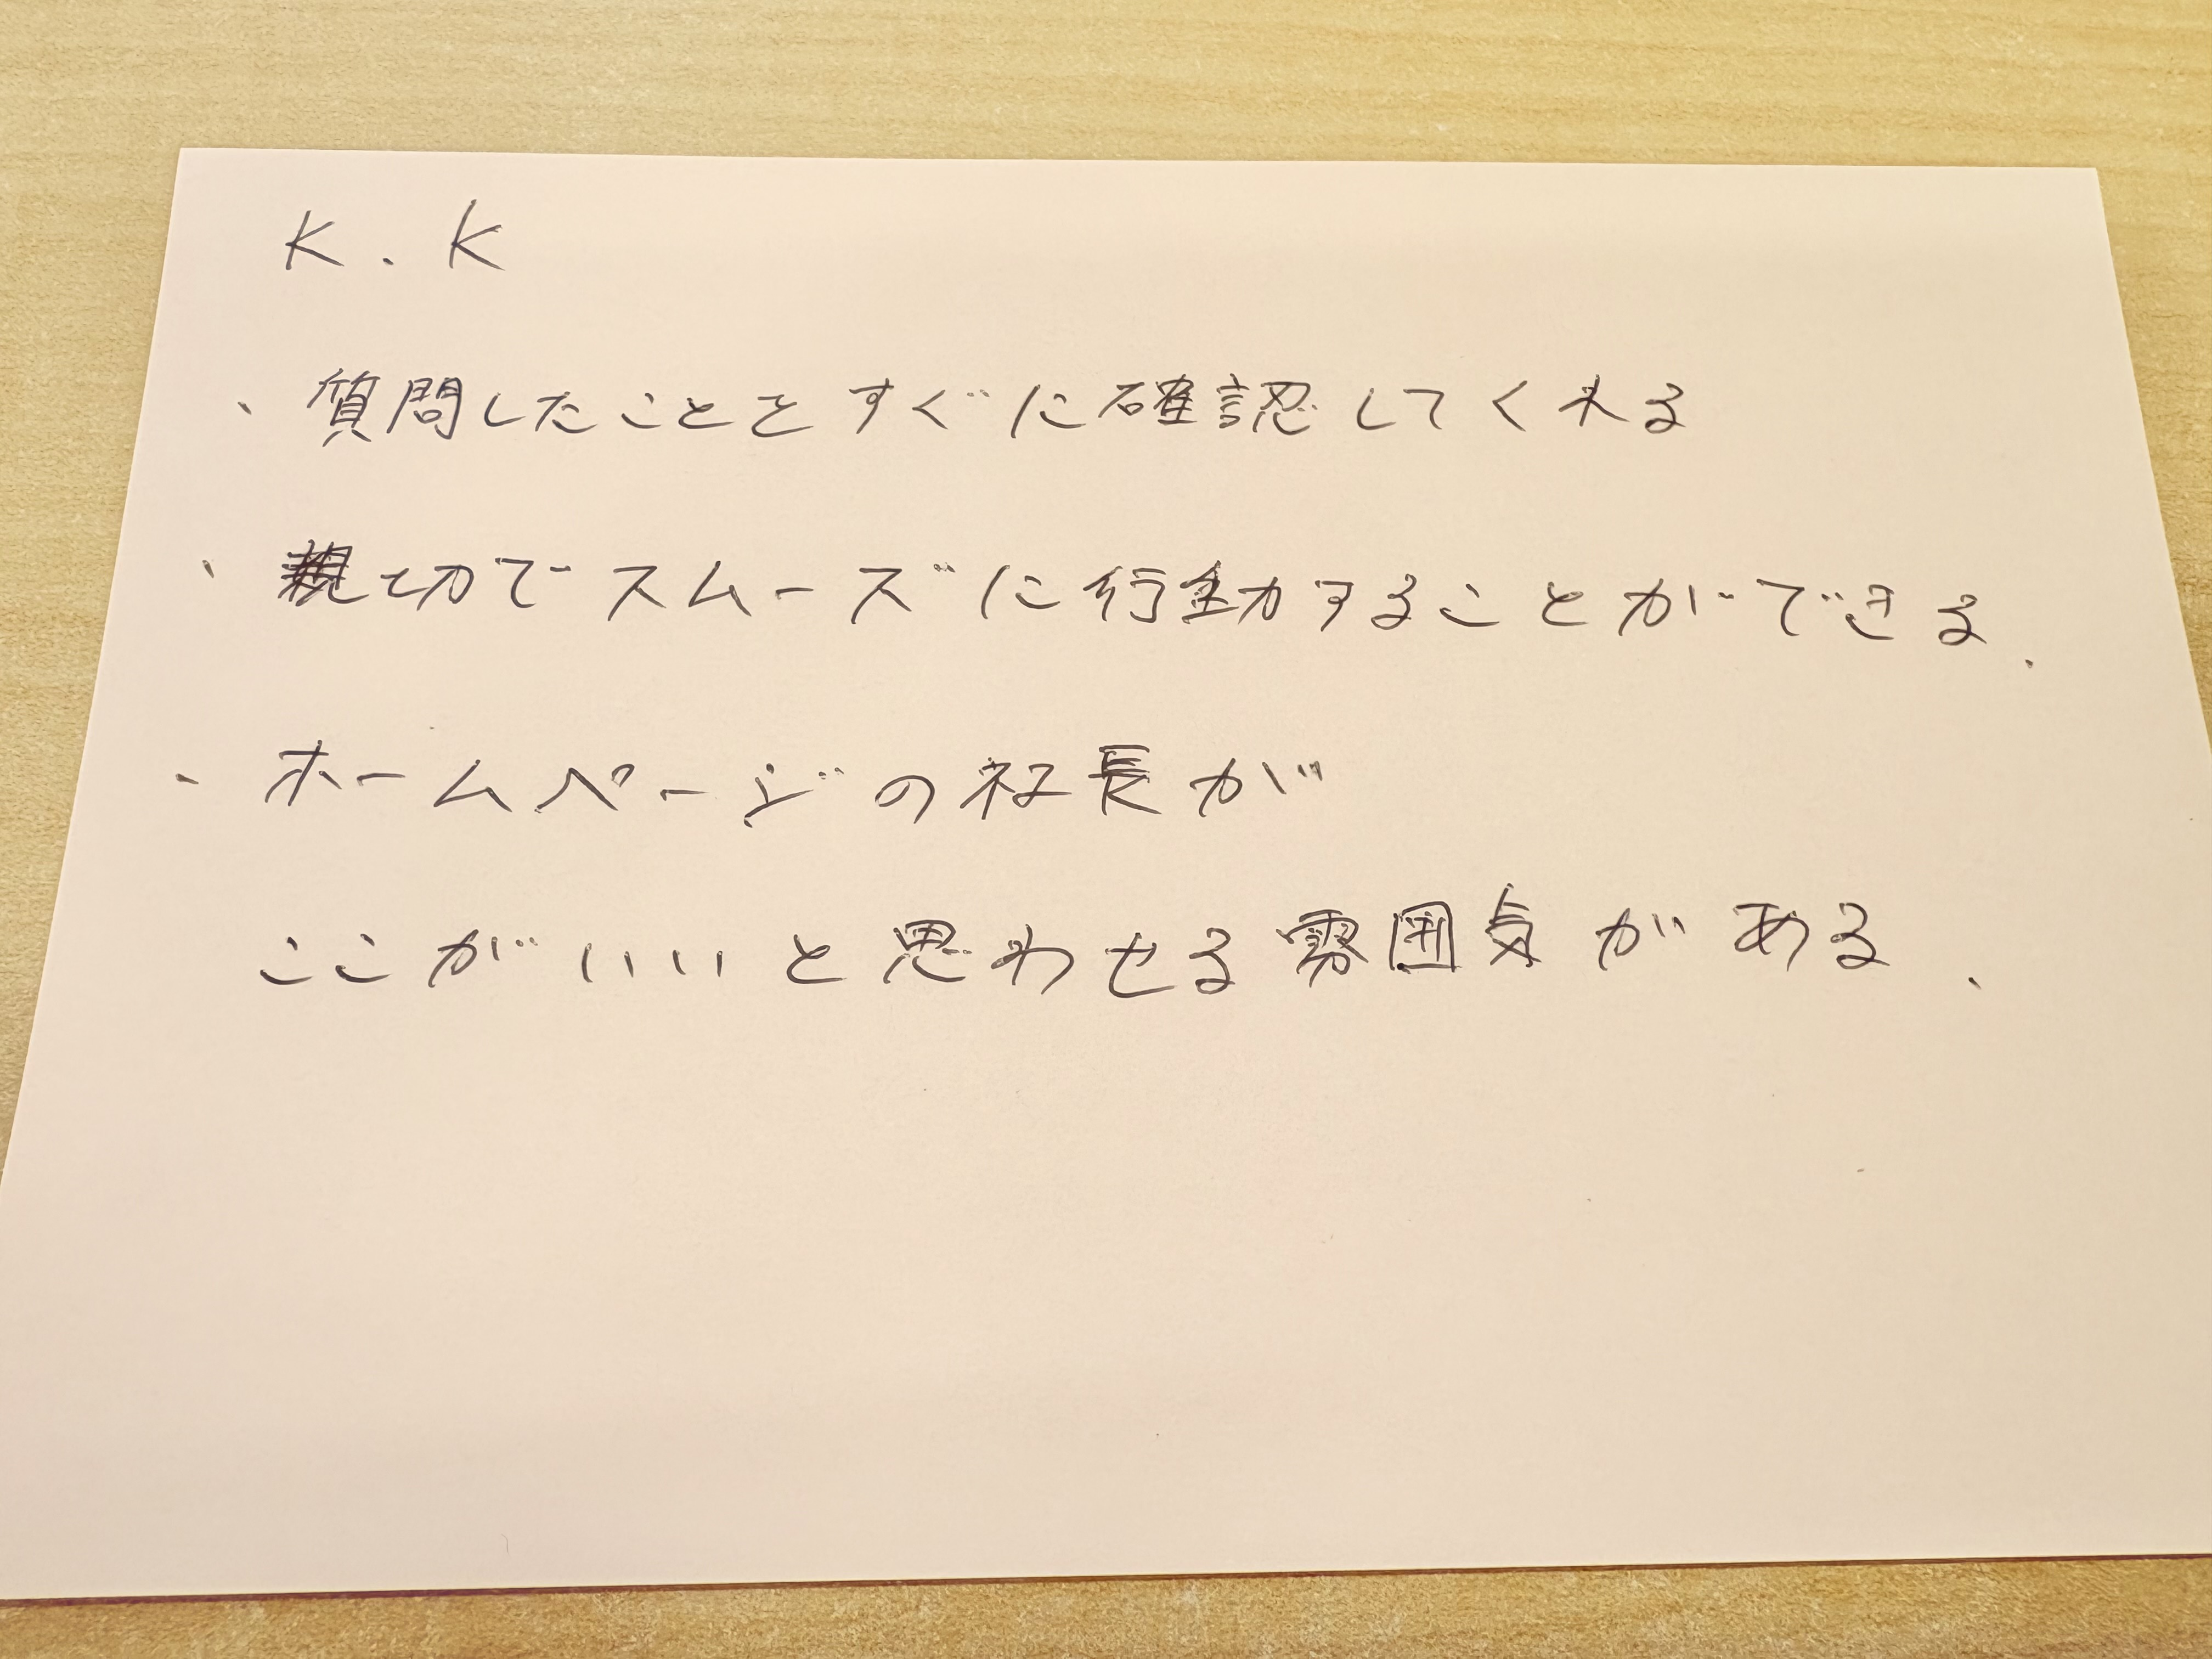 K.K
・質問したことをすぐに確認してくれる
・親切でスムーズに行動することができる.
・ホームページの社長が
ここがいいと思わせる雰囲気がある.